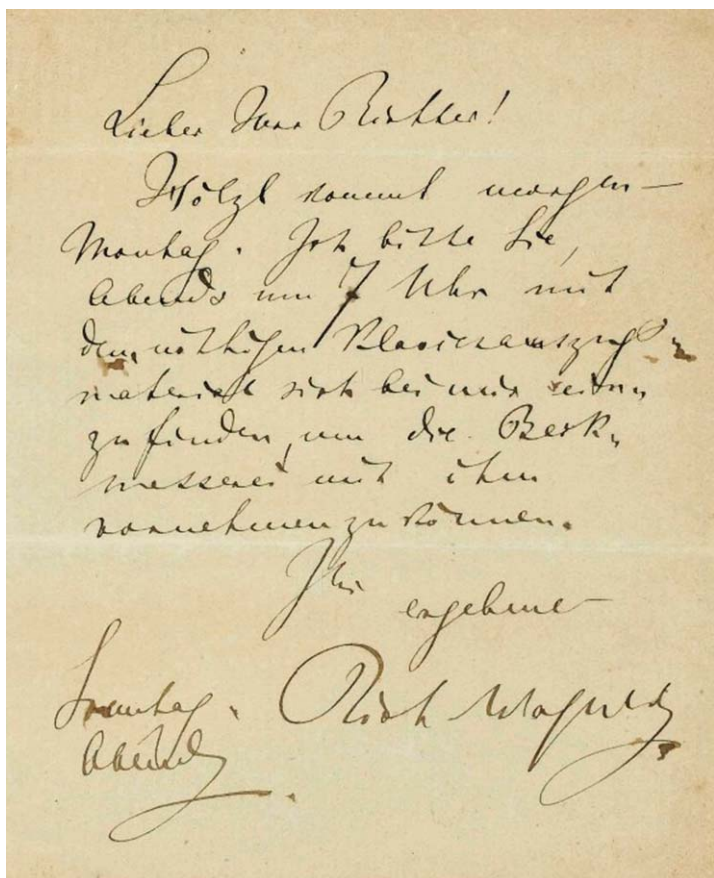 Lieber Herr Richter!
Hölzl kommt morgen —
Montag. Ich bitte Sie,
Abends um 7 Uhr mit
dem nöthigen Klavierauszugs-
material sich bei mir ein-
zufinden, um die Beck-
messerei mit ihm
vornehmen zu können.
Ihr
ergebener
Sonntag. Rich Wagner
Abend